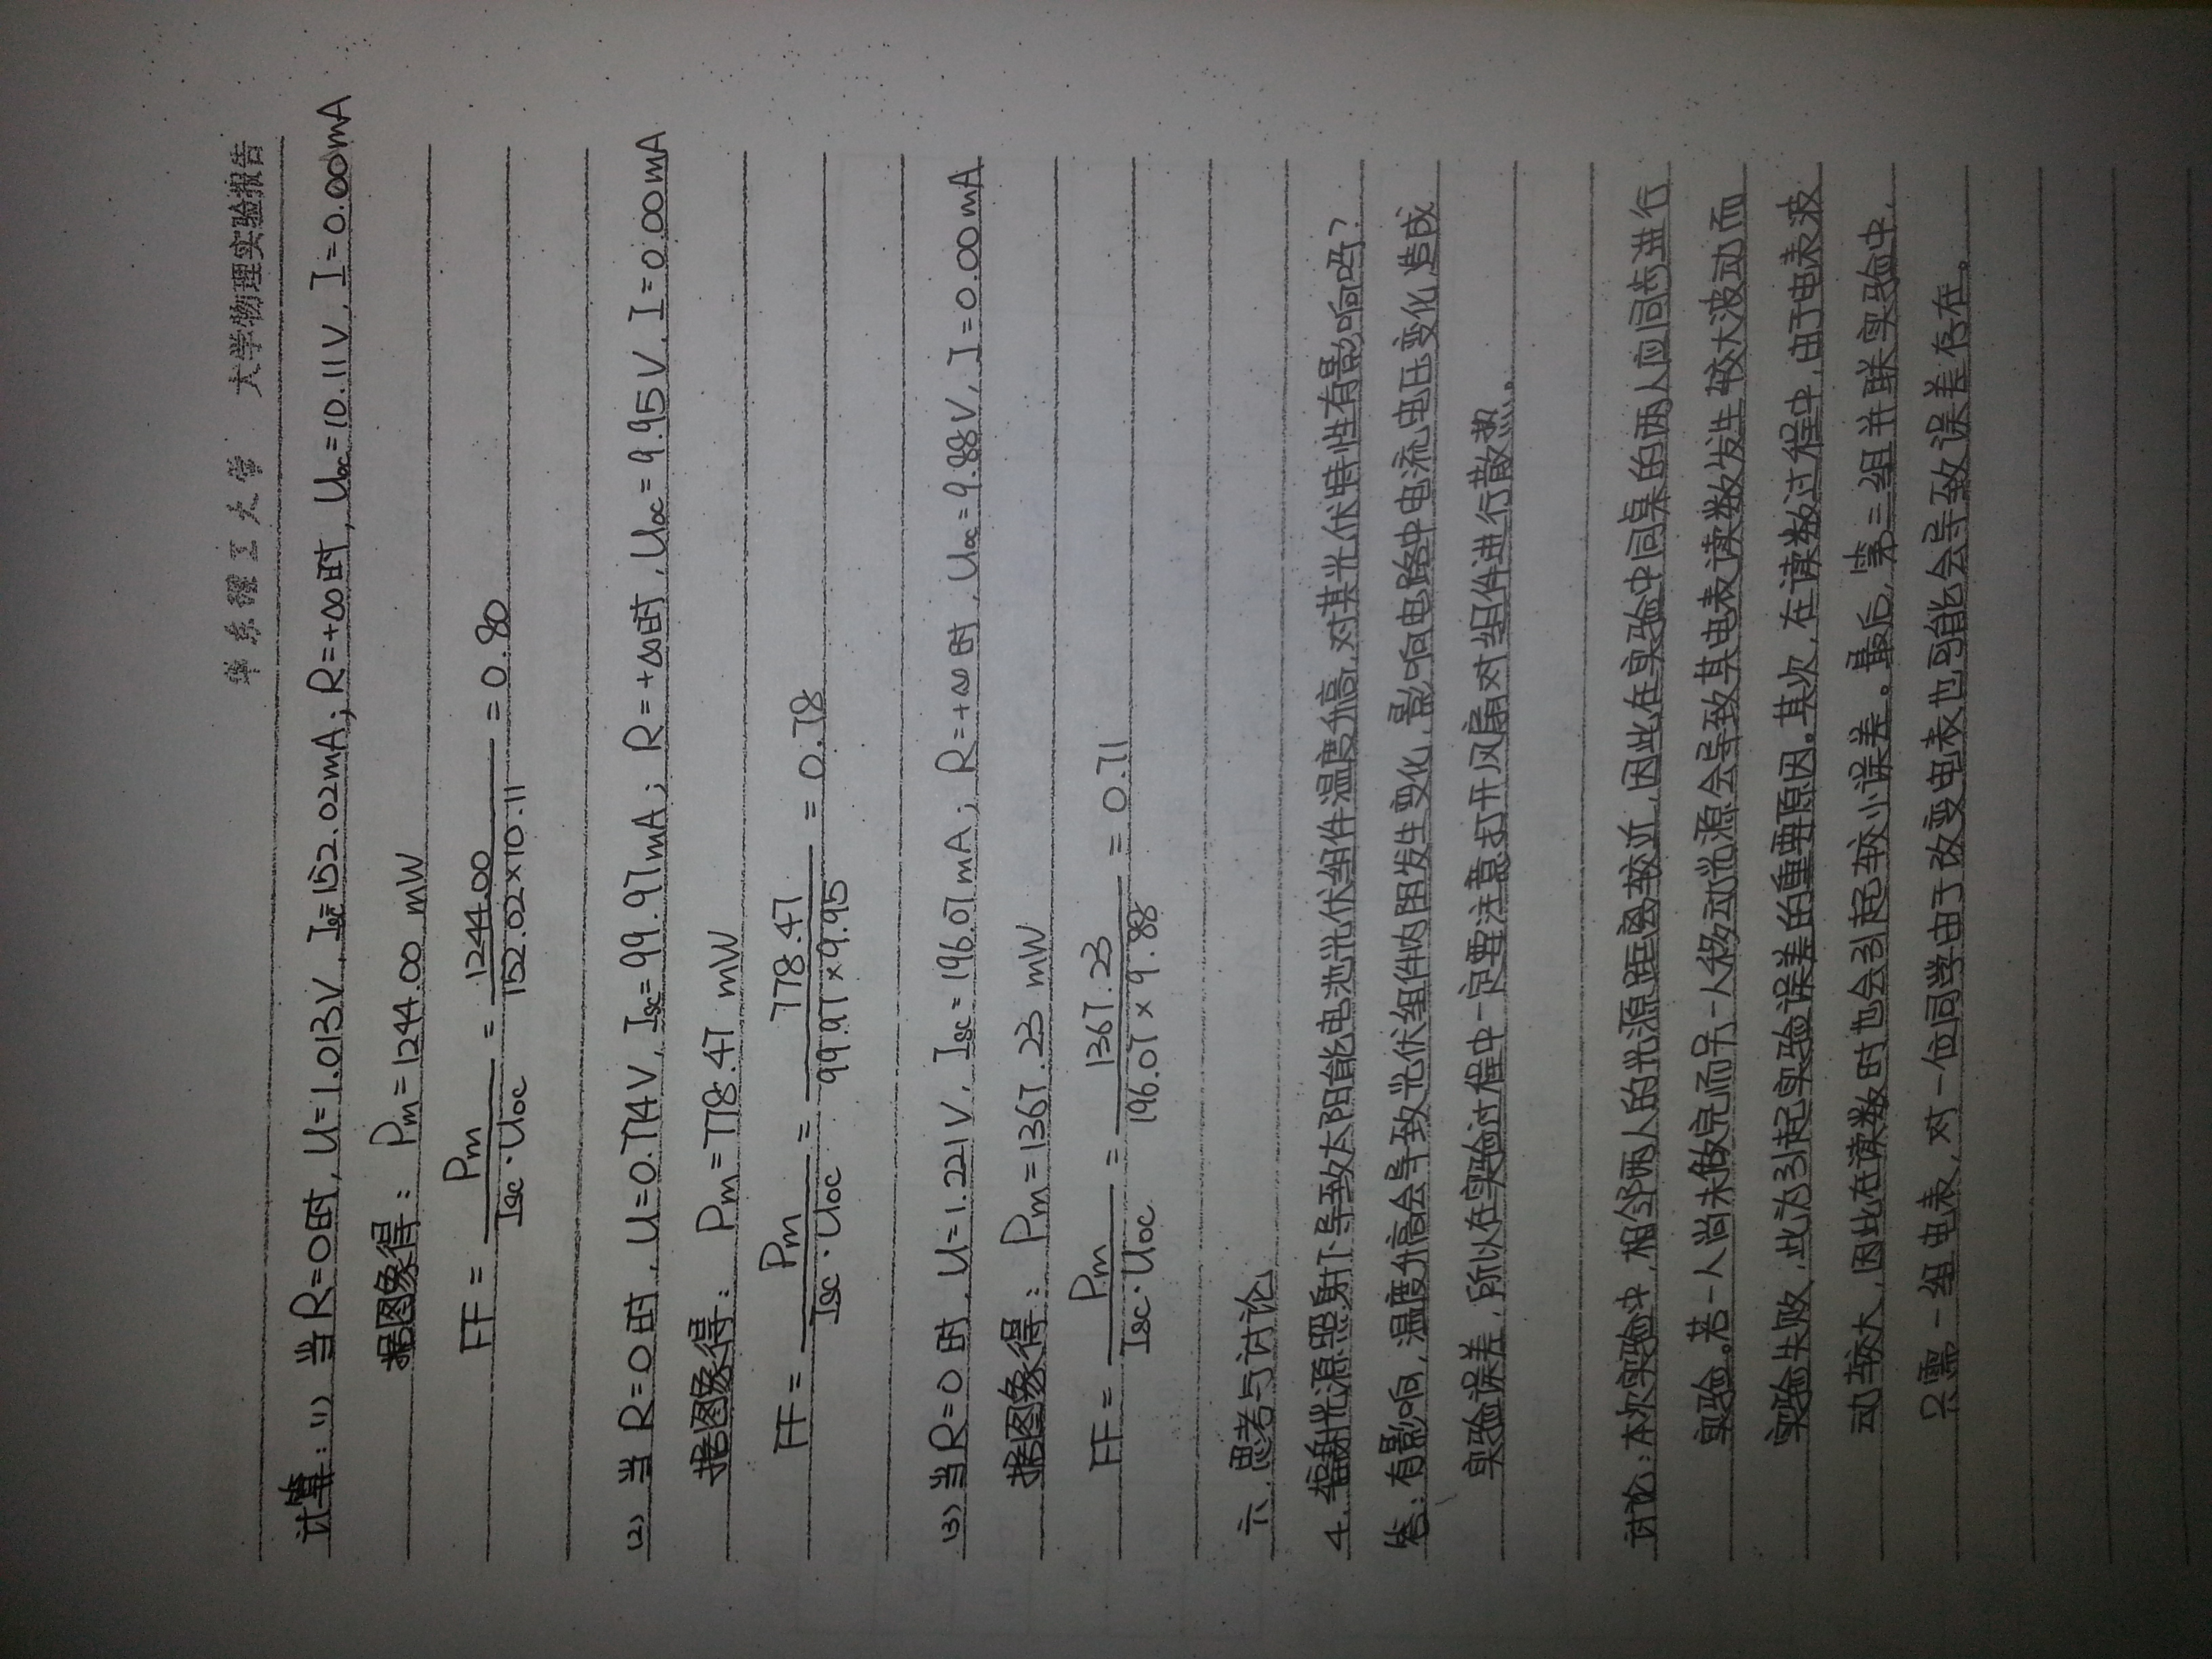 华东理工大学 大学物理实验报告
计算：(1) 当R=0时, U=1.013V, Isc=152.02mA; R=+∞时, Uoc=10.11V, I=0.00mA
据图象得： Pm=1244.00 mW
FF = Pm / (Isc·Uoc) = 1244.00 / (152.02×10.11) = 0.80
(2) 当R=0时, U=0.774V, Isc=99.97mA; R=+∞时, Uoc=9.95V, I=0.00mA
据图象得： Pm=778.47 mW
FF = Pm / (Isc·Uoc) = 778.47 / (99.97×9.95) = 0.78
(3) 当R=0时, U=1.221V, Isc=196.07mA; R=+∞时, Uoc=9.88V, I=0.00mA
据图象得： Pm=1367.23 mW
FF = Pm / (Isc·Uoc) = 1367.23 / (196.07×9.88) = 0.71
六、思考与讨论
4. 辐射光源照射下导致太阳能电池光伏组件温度升高, 对其光伏特性有影响吗？
答：有影响, 温度升高会导致光伏组件内阻发生变化, 影响电路中电流电压变化, 造成
实验误差, 所以在实验过程中一定要注意打开风扇对组件进行散热。
讨论：本次实验中, 相邻两人的光源距离较近, 因此在实验中同桌的两人应同步进行
实验。若一人尚未做完而另一人移动光源会导致其电表读数发生较大波动而
实验失败, 此为引起实验误差的重要原因。其次, 在读数过程中, 由于电表波
动较大, 因此在读数时也会引起较小误差。最后, 第三组并联实验中,
只需一组电表, 对一位同学由于改变电表也可能会导致误差存在。